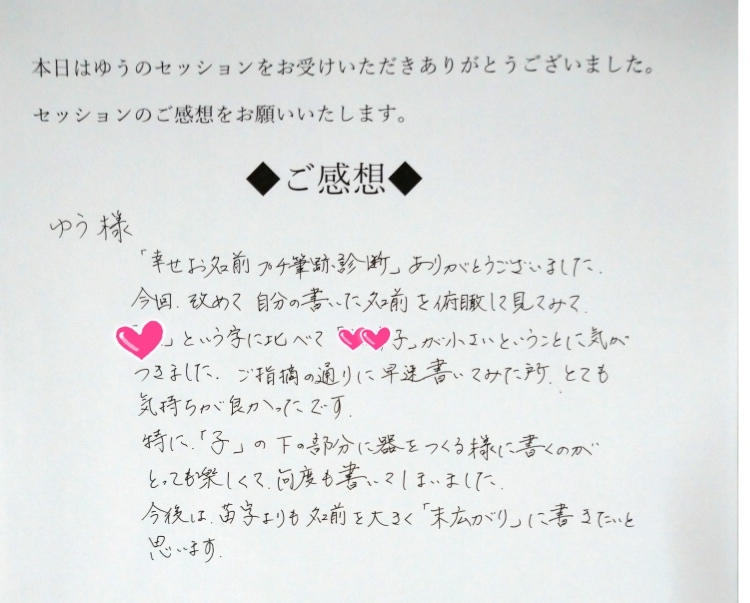 本日はゆうのセッションをお受けいただきありがとうございました。
セッションのご感想をお願いいたします。
◆ご感想◆
ゆう様
「幸せお名前プチ筆跡診断」ありがとうございました.
今回、改めて自分の書いた名前を俯瞰して見てみて、
」という字に比べて「子」が小さいということに気が
つきました. ご指摘の通りに早速書いてみた所、とても
気持ちが良かったです.
特に、「子」の下の部分に器をつくる様に書くのが
とっても楽しくて、何度も書いてしまいました.
今後は、苗字よりも名前を大きく「末広がり」に書きたいと
思います.